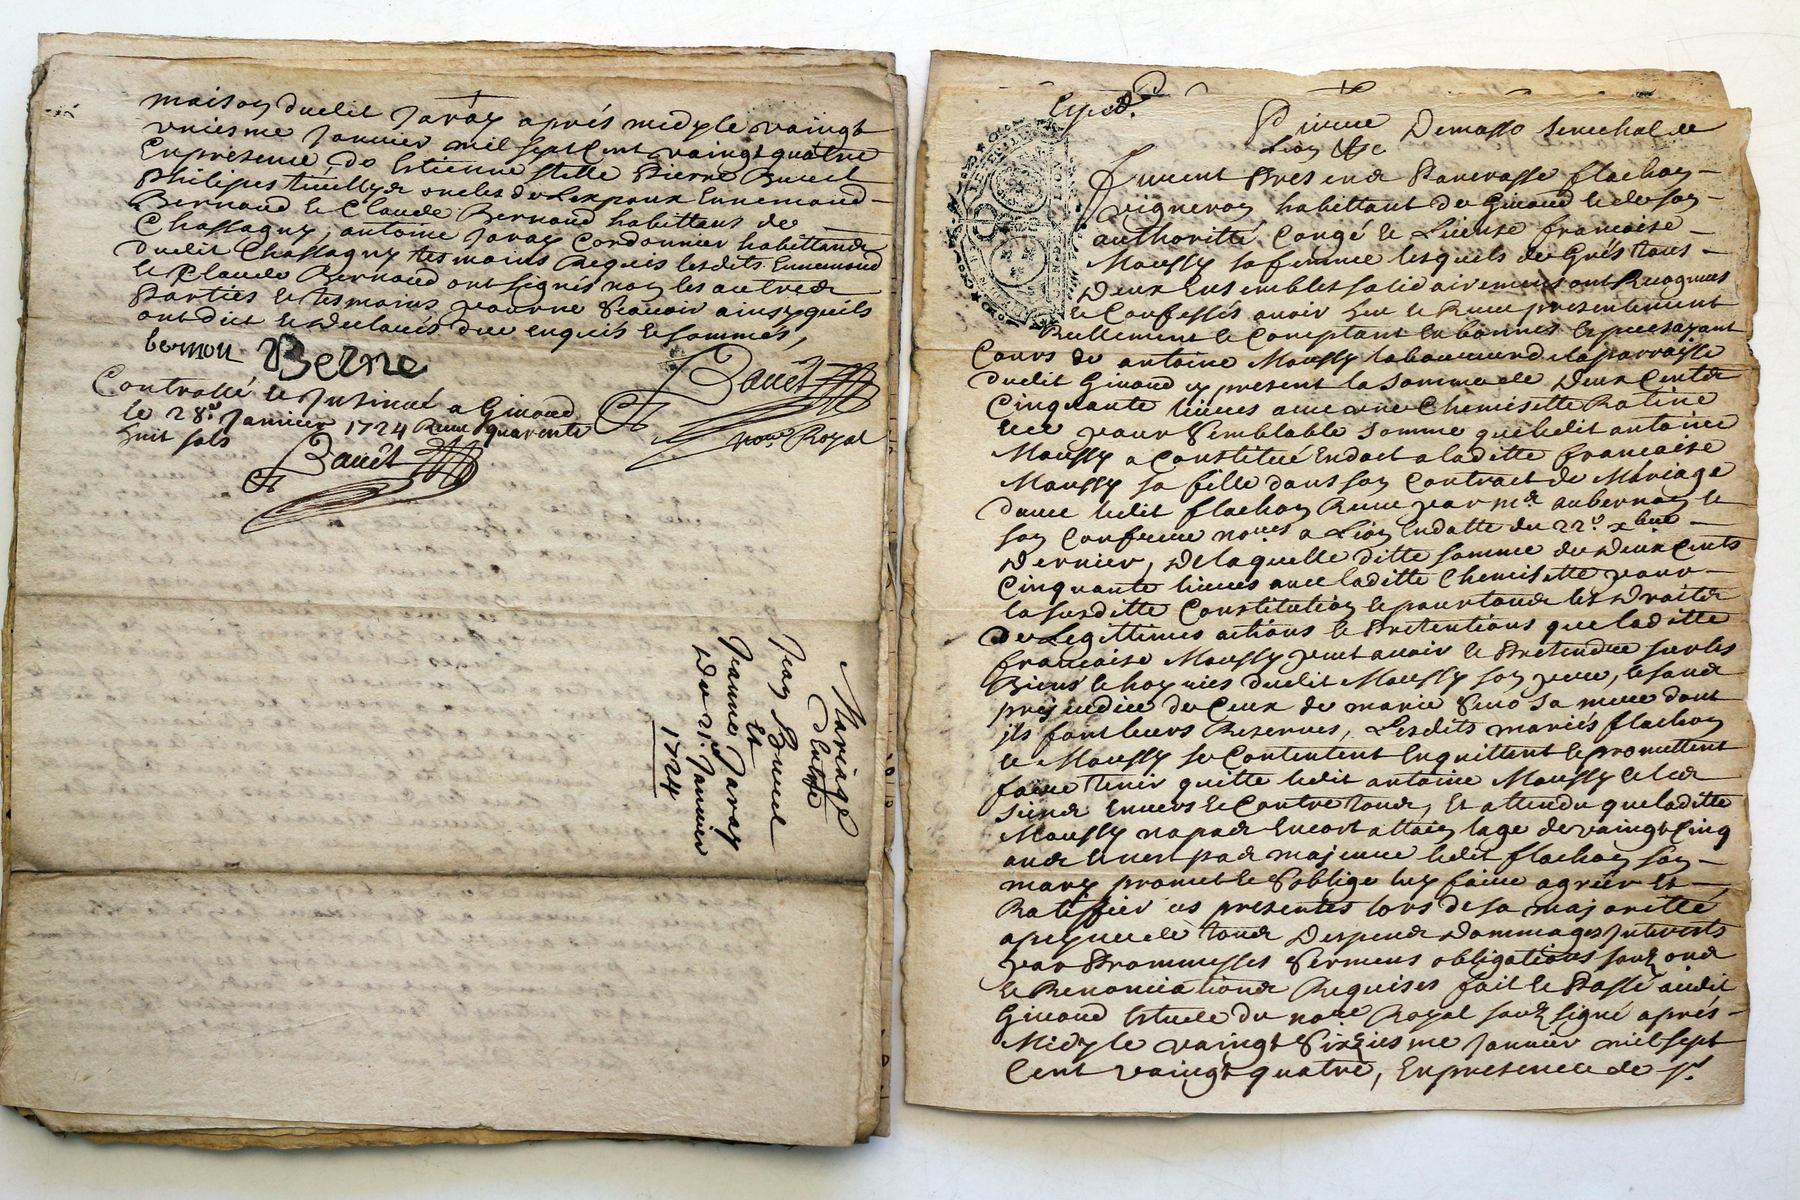 maison dudit Jaray aprés midy le vaingt
uniesme Janvier mil sept Cent vaingt quatre
En presence de Estienne Pierre
Philipes oncles de Lespoux Ennemond
Bernoud et Claude Bernoud habittans de
Chassagny, antoine Jaray Cordonnier habittand
dudit Chassagny tesmoins Requis lesdits Ennemond
et Claude Bernoud ont signes non les autres
Parties et tesmoins pour ne sçavoir ainsy quils
ont dict et declaré de ce enquis et sommés,
bernou Berne
Bauét
no.re Royal
Controllé et Insinué a Givord
le 28.e Janvier 1724 Receu quarente
huit sols
Bauét
Mariage
d'Entre
Jean
Et
Jeanne Jaray
Du 21.e Janvier
1724
Exped.
Pierre Demasso Senechal de
Lion &c
Furent Presens Pancrasse flachon
vigneron habittant de Givord et de son
authoritté Congé et License francoise
Moussy sa femme lesquels de Grés tous
Deux Ensembles solidairement ont Recognus
et Confessés avoir heu et Receu presentement
Reellement et Comptant en bonnes Especes ayant
Cours de antoine Moussy laboureur de la parroisse
dudit Givord cy present la somme de Deux Cents
Cinquante livres avec une Chemisette Ratine
et ce pour Semblable somme que ledit antoine
Moussy a Constitué En dot a laditte francoise
Moussy sa fille dans son Contract de Mariage
avec ledit flachon Receu par m.e aubernon et
son Confrere no.res a Lion En datte du 22.e xbre
Dernier, de laquelle ditte somme de Deux Cents
Cinquante livres avec laditte Chemisette pour
la susditte Constitution et pour tous les Droits
De Legittimes actions et Pretentions que laditte
francoise Moussy peut avoir et Pretendre sur les
Biens et hoyries dudit Moussy son pere, et sans
prejudice de Ceux de marie sa mere dont
ils font leurs Reserves, Lesdits mariés flachon
et Moussy se Contentent En quittent et promettent
faire tenir quitte ledit antoine Moussy et les
siens Envers et Contre tous, Et attendu que laditte
Moussy na pas Encore attein lage de vaingt Cinq
ans et nest pas majeure ledit flachon son
mary promet et Soblige luy faire agréer Et
Ratiffier ces presentes lors de sa majoritté
a peyne de tous Despens Dommages Interests
par Prommesses Sermens obligations
et Renonciations Requises fait et Passé audit
Givord Estude du no.re Royal soubsigné aprés
Midy le vaingt Sixiesme Janvier mil sept
Cent vaingt quatre, En presence de S.r